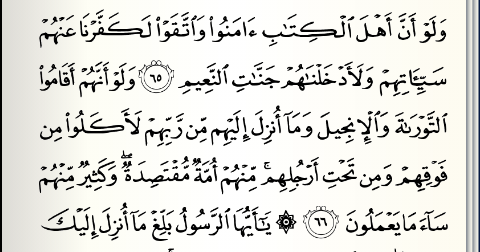 وَلَوْ أَنَّ أَهْلَ ٱلْكِتَٰبِ ءَامَنُوا۟ وَٱتَّقَوْا۟ لَكَفَّرْنَا عَنْهُمْ
سَيِّـَٔاتِهِمْ وَلَأَدْخَلْنَٰهُمْ جَنَّٰتِ ٱلنَّعِيمِ ٦٥ وَلَوْ أَنَّهُمْ أَقَامُوا۟
ٱلتَّوْرَىٰةَ وَٱلْإِنجِيلَ وَمَآ أُنزِلَ إِلَيْهِم مِّن رَّبِّهِمْ لَأَكَلُوا۟ مِن
فَوْقِهِمْ وَمِن تَحْتِ أَرْجُلِهِم ۚ مِّنْهُمْ أُمَّةٌ مُّقْتَصِدَةٌ ۖ وَكَثِيرٌ مِّنْهُمْ
سَآءَ مَا يَعْمَلُونَ ٦٦ ۞ يَٰٓأَيُّهَا ٱلرَّسُولُ بَلِّغْ مَآ أُنزِلَ إِلَيْكَ